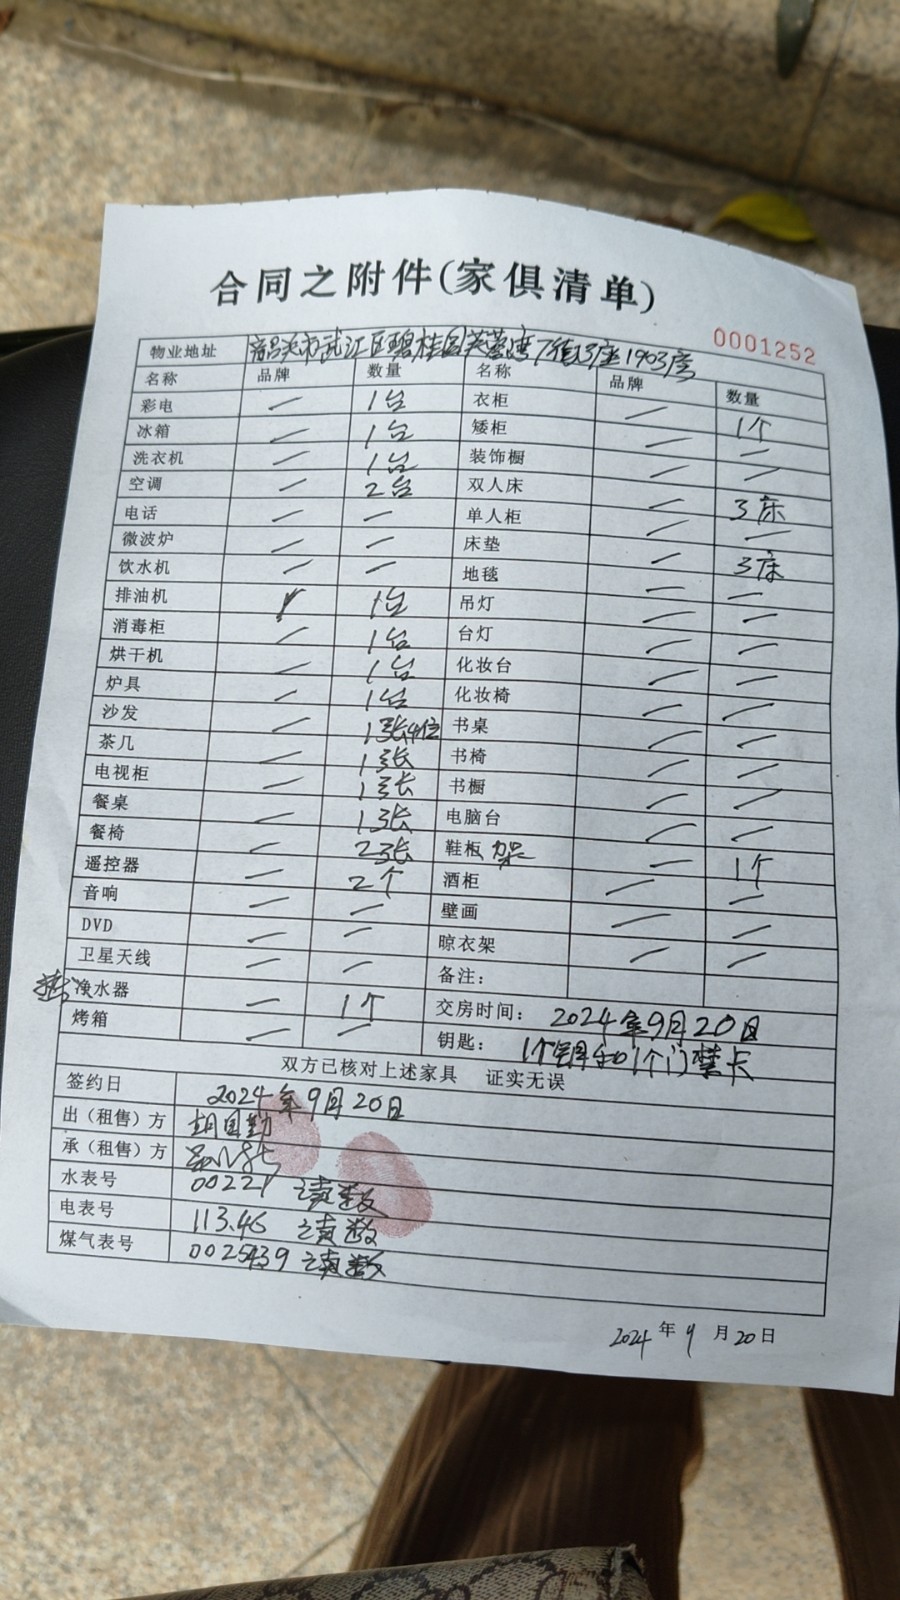 合同之附件(家俱清单)
0001252
物业地址 韶关市武江区碧桂园芙蓉湾7街13座1903房
名称 品牌 数量 名称 品牌 数量
彩电 — 1台 衣柜 — 1个
冰箱 — 1台 矮柜 — —
洗衣机 — 1台 装饰橱 — —
空调 — 2台 双人床 — 3床
电话 — — 单人柜 — —
微波炉 — — 床垫 — 3床
饮水机 — — 地毯 — —
排油机 1台 吊灯 — —
消毒柜 — 1台 台灯 — —
烘干机 — 1台 化妆台 — —
炉具 — 1台 化妆椅 — —
沙发 — 1张4位 书桌 — —
茶几 — 1张 书椅 — —
电视柜 — 1张 书橱 — —
餐桌 — 1张 电脑台 — —
餐椅 — 2张 鞋柜 架 — 1个
遥控器 — 2个 酒柜 — —
音响 — — 壁画 — —
DVD — — 晾衣架 — —
卫星天线 — — 备注:
水器 — 1个 交房时间: 2024年9月20日
烤箱 — — 钥匙: 1个钥和1个门禁卡
双方已核对上述家具 证实无误
签约日 2024年9月20日
出（租售）方 胡国勤
承（租售）方
水表号 00221 读数
电表号 113.46 读数
煤气表号 0025439 读数
2024年9月20日